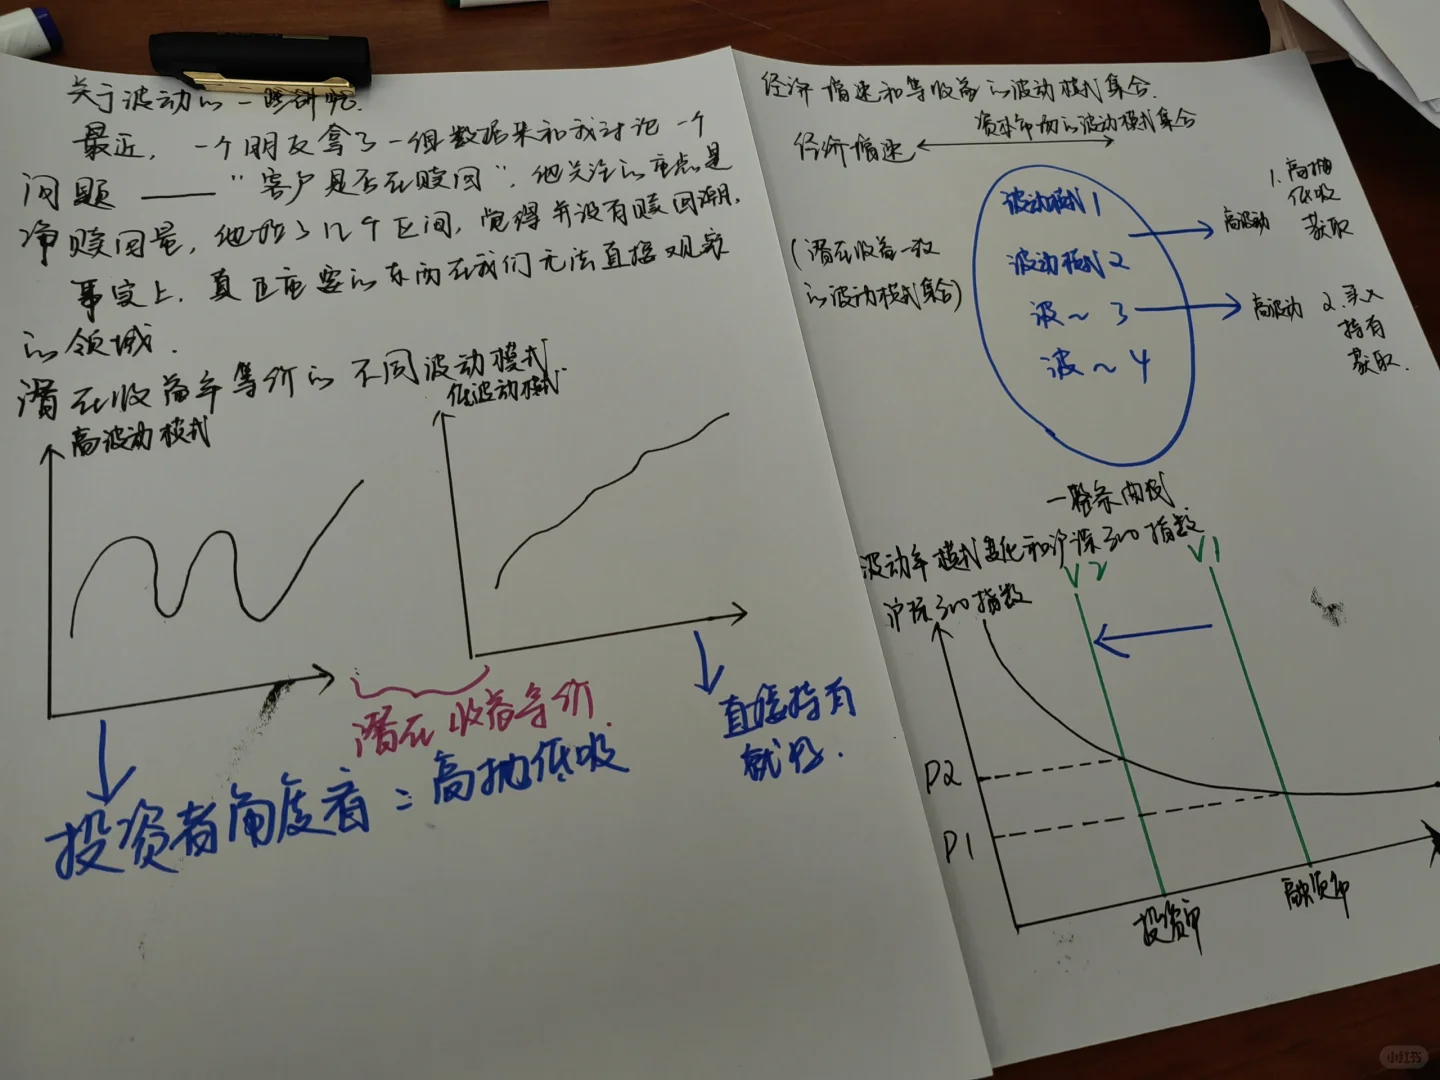 关于波动的一些研究.
最近，一个朋友拿了一组数据来和我讨论一个
问题 ——"客户是否在赎回"，他关注的重点是
净赎回量，他拍了几个区间，觉得并没有赎回潮.
事实上，真正重要的东西在我们无法直接观察
的领域.
潜在收益率等价的不同波动模式
高波动模式
低波动模式.
潜在收益等价.
直接持有
就好.
投资者角度看 = 高抛低吸
经济增速和等收益的波动模式集合.
资本市场的波动模式集合
经济增速
(潜在收益一致
的波动模式集合)
波动模式1
波动模式2
波~3
波~4
高波动
1. 高抛
低吸
获取
高波动
2. 买入
持有
获取.
一整条曲线
波动率模式变化和沪深300指数
沪深300指数
V2
V1
P2
P1
投资市
融资市
小红书